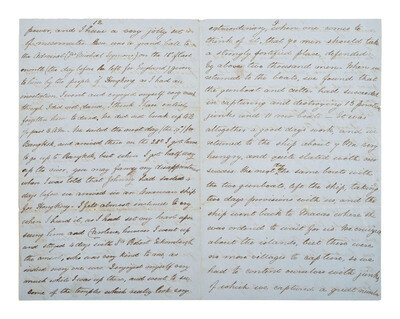 power, and I have a very jolly set of
messmates. There was a grand ball to
the Admiral (Sir Michael Seymour) on the 15th of last
month (the day before he left for England) given
to him by the people of Hongkong as I had an
invitation I went and enjoyed myself very much
though I did not dance. I think I am entirely
forgotten how to dance, we did not break up till
½ past 3 AM. We sailed the next day (the 16th) for
Bangkok, and arrived there on the 28th I got leave
to go up to Bangkok, but when I got half way
up the river, you may fancy my disappointment
when I was told that Johnny had sailed
days before we arrived in an American ship
for Hongkong. I felt almost inclined to cry
when I heard it, as I had set my heart upon
seeing him and Caroline, however I went up
and stayed a day with Sir Robert Schomburgk
the consul, who was very kind to me, as
indeed every one was. I enjoyed myself very
much while I was up there, and went to see
some of the temples which really look very
extraordinary, when one comes to
think of it, that 90 men should take
a strongly fortified place, defended
by above two thousand men. When we
returned to the boats, we found that
the gunboat and cutter had succeeded
in capturing and destroying 13
junks and 11 row boats – it was
altogether a good day's work, and we
returned to the ship about 9 PM very
hungry, and much elated with our
success. The next the same boats with
the two gunboats, left the ship, taking
two days provisions with us and the
ship went back to Macao where she
was ordered to wait for us. We cruized
about the islands, but there were
no more villages to capture, so we
had to content ourselves with junks
of which we captured a great number